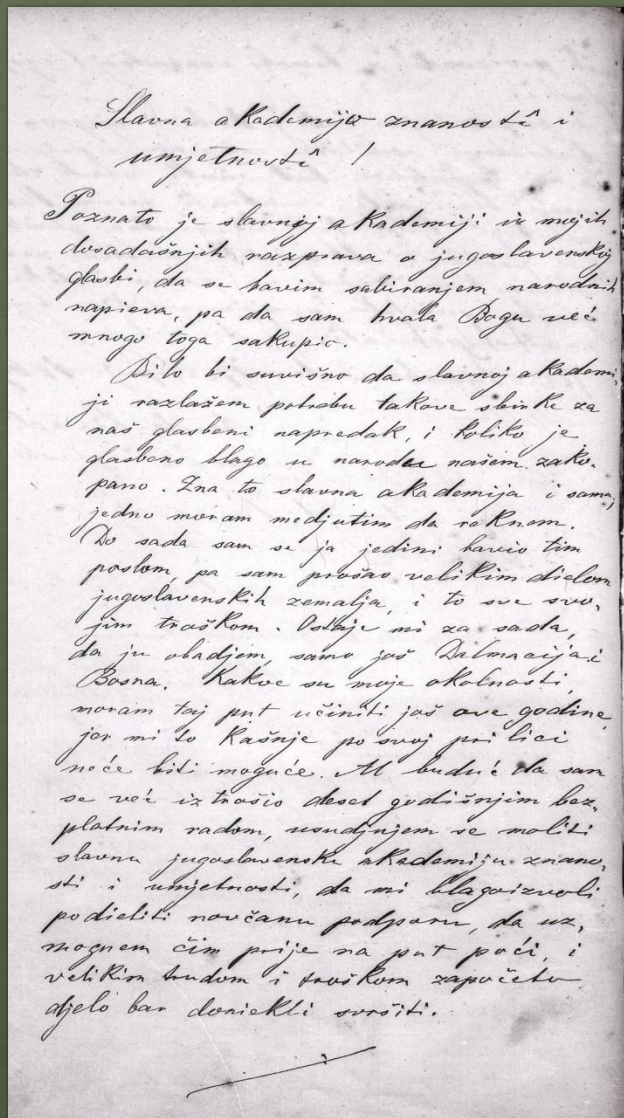 Slavna akademijo znanostî i
umjetnostî !
Poznato je slavnoj akademiji iz mojih
dosadašnjih razprava o jugoslavenskoj
glasbi, da se bavim sabiranjem narodnih
napieva, pa da sam hvala Bogu već
mnogo toga sakupio.
Bilo bi suvišno da slavnoj akademi-
ji razlažem potrebu takove sbirke za
naš glasbeni napredak, i koliko je
glasbeno blago u narodu našem zako-
pano. Zna to slavna akademija i sama,
jedno moram medjutim da reknem.
Do sada sam se ja jedini bavio tim
poslom, pa sam prošao velikim dielom
jugoslavenskih zemalja, i to sve svo-
jim troškom. Ostaje mi za sada,
da ju obadjem, samo još Dalmacija i
Bosna. Kakve su moje okolnosti,
moram taj put učiniti još ove godine,
jer mi to kašnje po svoj prilici
neće biti moguće. Al buduć da sam
se već iztrošio deset godišnjim bez-
platnim radom, usudjujem se moliti
slavnu jugoslavensku akademiju znano-
sti i umjetnosti, da mi blagoizvoli
podieliti novčanu podporu, da uz-
mognem čim prije na put poći, i
velikim trudom i troškom započeto
djelo bar doniekli svršiti.